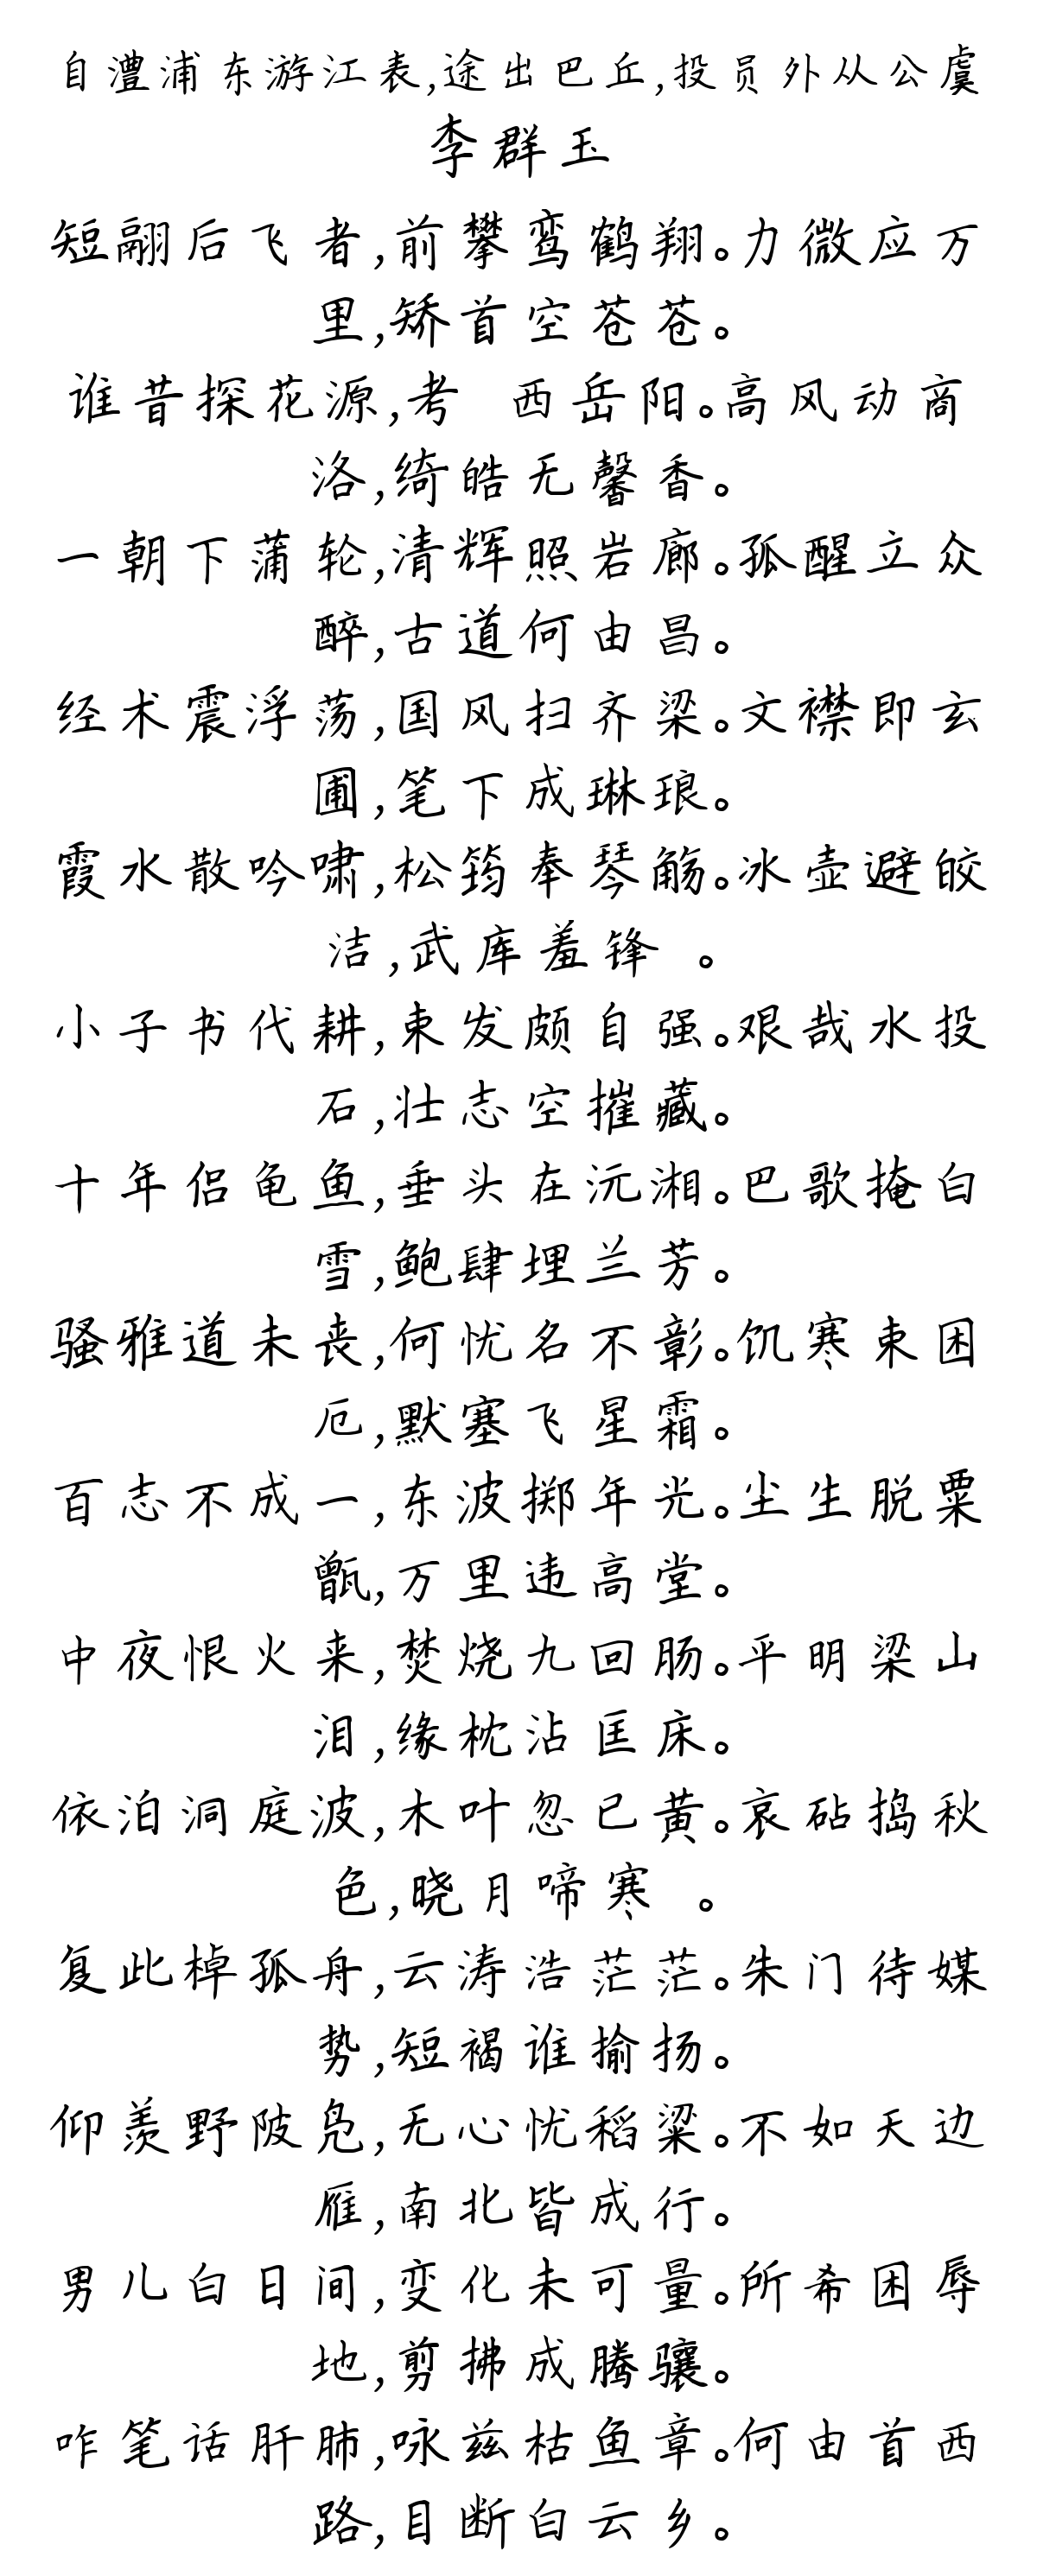 自澧浦东游江表,途出巴丘,投员外从公虞
李群玉
短翮后飞者,前攀鸾鹤翔。力微应万
里,矫首空苍苍。
谁昔探花源,考 西岳阳。高风动商
洛,绮皓无馨香。
一朝下蒲轮,清辉照岩廊。孤醒立众
醉,古道何由昌。
经术震浮荡,国风扫齐梁。文襟即玄
圃,笔下成琳琅。
霞水散吟啸,松筠奉琴觞。冰壶避皎
洁,武库羞锋 。
小子书代耕,束发颇自强。艰哉水投
石,壮志空摧藏。
十年侣龟鱼,垂头在沅湘。巴歌掩白
雪,鲍肆埋兰芳。
骚雅道未丧,何忧名不彰。饥寒束困
厄,默塞飞星霜。
百志不成一,东波掷年光。尘生脱粟
甑,万里违高堂。
中夜恨火来,焚烧九回肠。平明梁山
泪,缘枕沾匡床。
依泊洞庭波,木叶忽已黄。哀砧捣秋
色,晓月啼寒 。
复此棹孤舟,云涛浩茫茫。朱门待媒
势,短褐谁揄扬。
仰羡野陂凫,无心忧稻粱。不如天边
雁,南北皆成行。
男儿白日间,变化未可量。所希困辱
地,剪拂成腾骧。
咋笔话肝肺,咏兹枯鱼章。何由首西
路,目断白云乡。